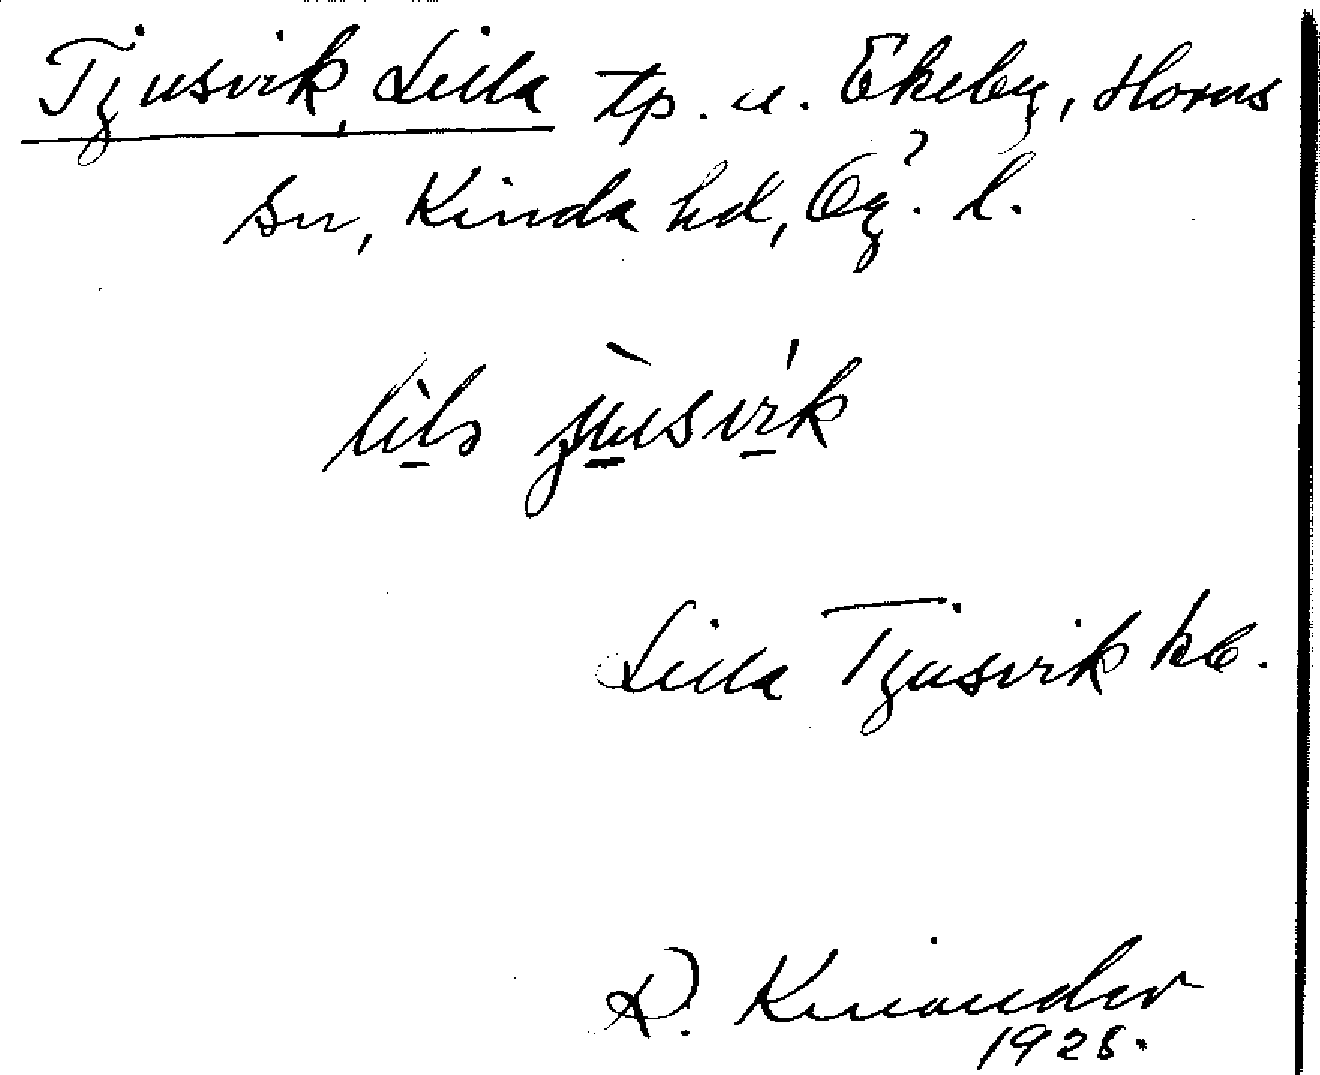 Tjusvik, Lilla tp. u. Ekeby, Horns
sn, Kinda hd, Ög. l.
lìls jùsvík
Lilla Tjusvik kb.
R. Kinander
1928.